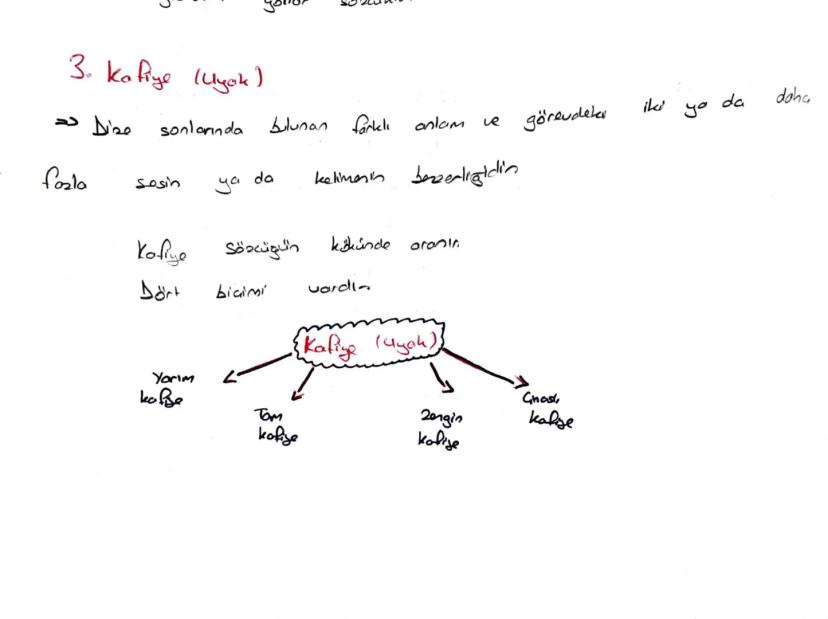 3. Kafiye (Uyak)
=> Dize sonlarında bulunan farklı anlam ve görevdeki iki ya da daha
fazla sesin ya da kelimenin benzerliğidir
Kafiye sözcüğün kökünde aranır.
Dört biçimi vardır
Kafiye (Uyak)
Yarım kafiye
Tam kafiye
Zengin kafiye
Cinaslı kafiye